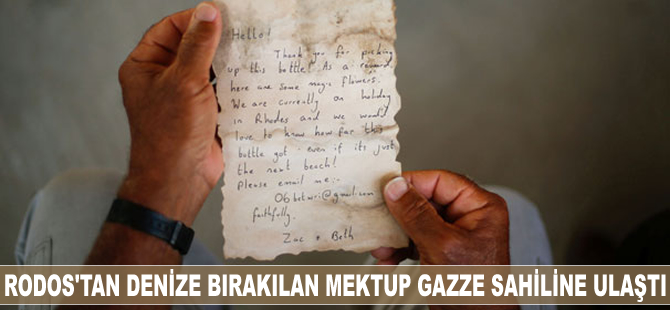 Hello!
Thank you for picking
up this bottle! As a reward
here are some magic flowers.
We are currently on holiday
in Rhodes and we would
love to know how far this
bottle got - even if its just
the next beach!
Please email me:-
@gmail.com
faithfully.
Zac + Beth
RODOS'TAN DENİZE BIRAKILAN MEKTUP GAZZE SAHİLİNE ULAŞTI